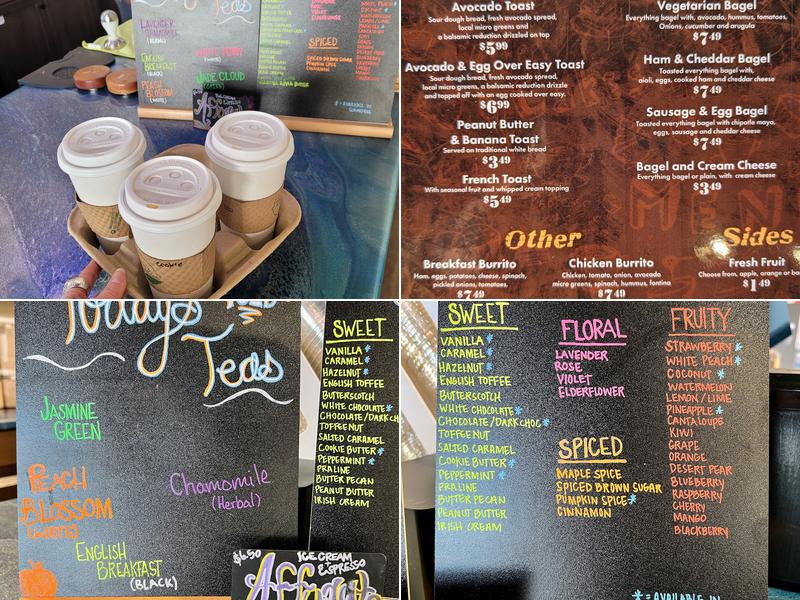 Teas
LAVENDER
CHAMOMILE
(HERBAL)
ENGLISH
BREAKFAST
(BLACK)
PEACH
BLOSSOM
(WHITE)
JADE CLOUD
(GREEN)
SPICED
Cookie
Avocado Toast
Sour dough bread, fresh avocado spread,
local micro greens and
a balsamic reduction drizzled on top
$5.99
Avocado & Egg Over Easy Toast
Sour dough bread, fresh avocado spread,
local micro greens, a balsamic reduction drizzle
and topped off with an egg cooked over easy.
$6.99
Peanut Butter
& Banana Toast
Served on traditional white bread
$3.49
French Toast
With seasonal fruit and whipped cream topping
$5.49
Vegetarian Bagel
Everything bagel with, avocado, hummus, tomatoes,
Onions, cucumber and arugula
$7.49
Ham & Cheddar Bagel
Toasted everything bagel with,
aioli, eggs, cooked ham and cheddar cheese
$7.49
Sausage & Egg Bagel
Toasted everything bagel with chipotle mayo,
eggs, sausage and cheddar cheese
$7.49
Bagel and Cream Cheese
Everything bagel or plain, with cream cheese
$3.49
MEN
Other
Breakfast Burrito
Ham, eggs, potatoes, cheese, spinach,
pickled onions, tomatoes,
$7.49
Chicken Burrito
Chicken, tomato, onion, avocado
micro greens, spinach, hummus, fontina
$7.49
Sides
Fresh Fruit
Choose from, apple, orange or ba
$1.49
Today's
Teas
JASMINE
GREEN
PEACH
BLOSSOM
(WHITE)
Chamomile
(Herbal)
ENGLISH
BREAKFAST
(BLACK)
$6.50
ICE CREAM
ESPRESSO
SWEET
VANILLA *
CARAMEL *
HAZELNUT *
ENGLISH TOFFEE
BUTTERSCOTCH
WHITE CHOCOLATE *
CHOCOLATE/DARK CH
TOFFEE NUT
SALTED CARAMEL
COOKIE BUTTER *
PEPPERMINT *
PRALINE
BUTTER PECAN
PEANUT BUTTER
IRISH CREAM
SWEET
VANILLA *
CARAMEL *
HAZELNUT *
ENGLISH TOFFEE
BUTTERSCOTCH
WHITE CHOCOLATE *
CHOCOLATE/DARK CHOC *
TOFFEE NUT
SALTED CARAMEL
COOKIE BUTTER *
PEPPERMINT *
PRALINE
BUTTER PECAN
PEANUT BUTTER
IRISH CREAM
FLORAL
LAVENDER
ROSE
VIOLET
ELDERFLOWER
SPICED
MAPLE SPICE
SPICED BROWN SUGAR
PUMPKIN SPICE *
CINNAMON
FRUITY
STRAWBERRY *
WHITE PEACH *
COCONUT *
WATERMELON
LEMON/LIME
PINEAPPLE *
CANTALOUPE
KIWI
GRAPE
ORANGE
DESERT PEAR
BLUEBERRY
RASPBERRY
CHERRY
MANGO
BLACKBERRY
* = AVAILABLE IN